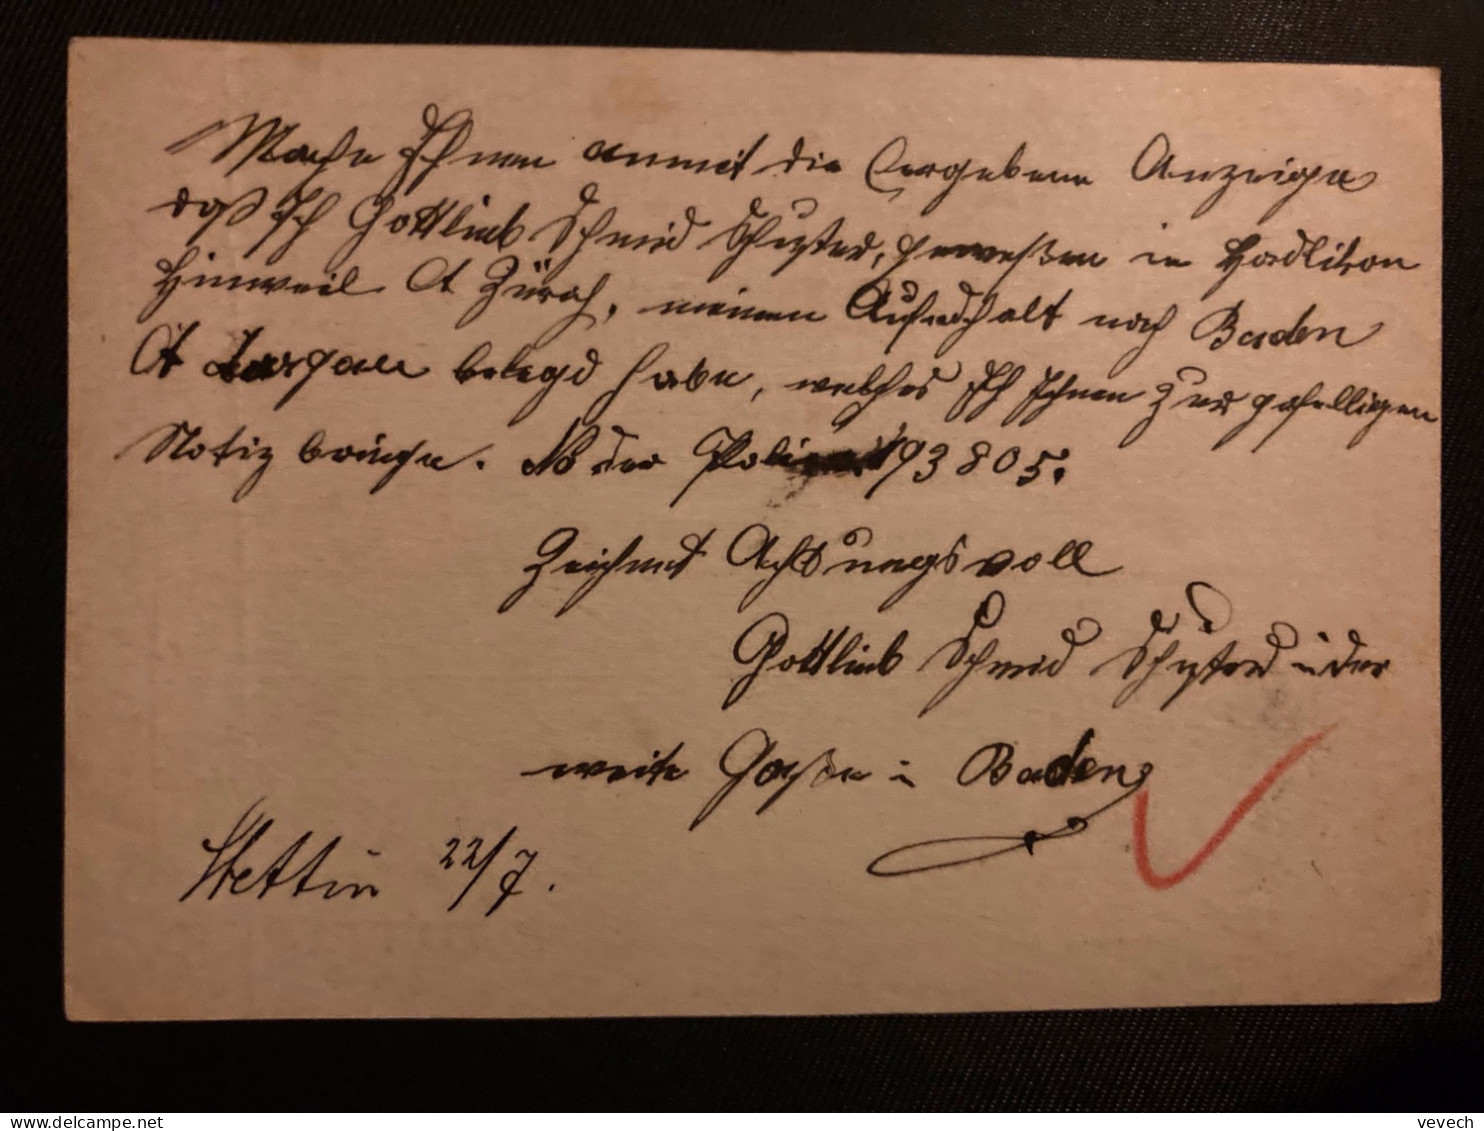 Mache Ihnen anmit die ergebene Anzeige
daß Ich Gottlieb Schmid Schuster, geweßen in Hadlikon
Hinweil Ct Zürch, meinen Aufendhalt nach Baden
Ct Aargau belegd habe, welches Ich Ihnen zur gefelligen
Notiz bringe. No der Police 193805.
Zeichnet Achtungsvoll
Gottlieb Schmid Schuster in der
weite Gaße in Baden
Stettin 22/7.
vevech